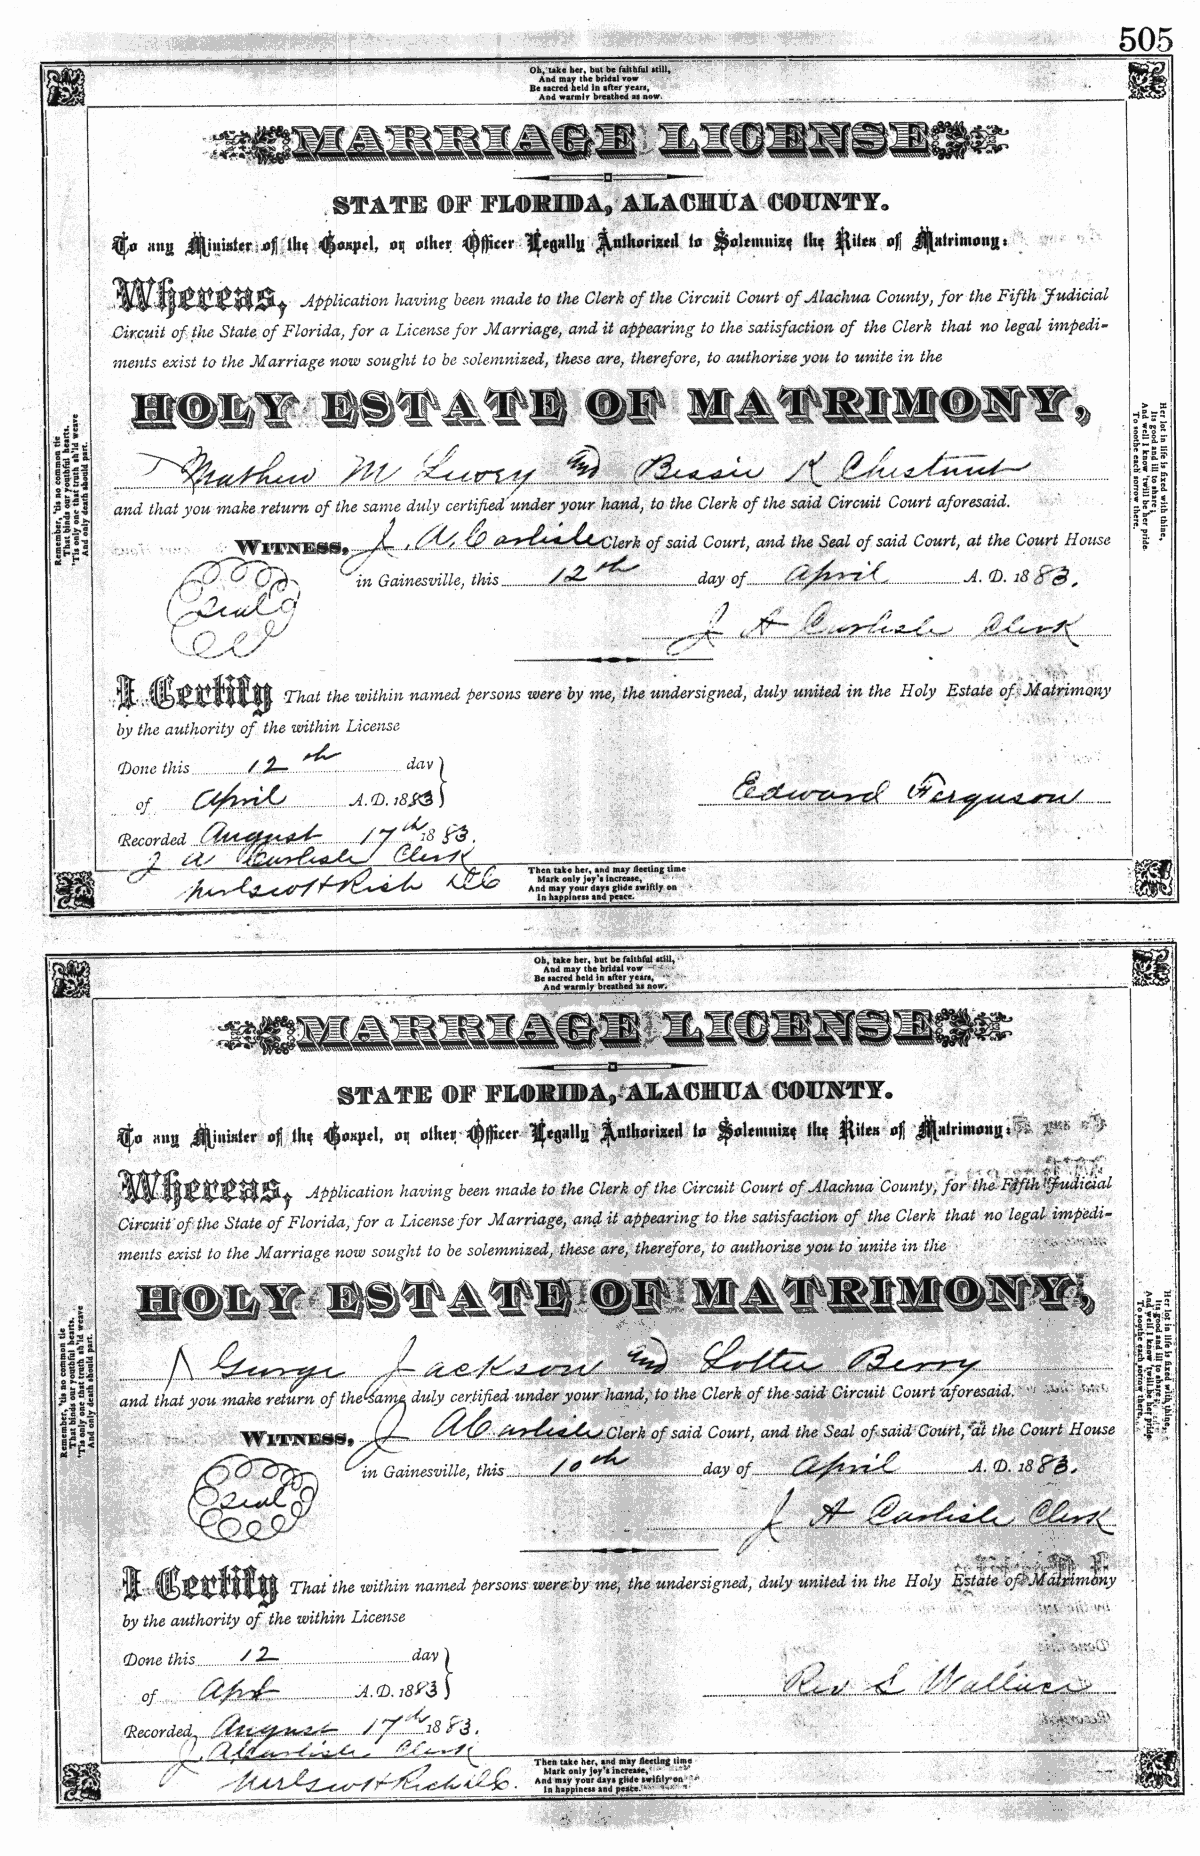 505
Oh, take her, but be faithful still,
And may the bridal vow
Be sacred held in after years,
And warmly breathed as now.
MARRIAGE LICENSE
STATE OF FLORIDA, ALACHUA COUNTY.
To any Minister of the Gospel, or other Officer Legally Authorized to Solemnize the Rites of Matrimony:
Whereas, Application having been made to the Clerk of the Circuit Court of Alachua County, for the Fifth Judicial
Circuit of the State of Florida, for a License for Marriage, and it appearing to the satisfaction of the Clerk that no legal impedi-
ments exist to the Marriage now sought to be solemnized, these are, therefore, to authorize you to unite in the
HOLY ESTATE OF MATRIMONY,
Mathew M Livery and Bessie K Chestnut
and that you make return of the same duly certified under your hand, to the Clerk of the said Circuit Court aforesaid.
WITNESS, J. A. Carlisle Clerk of said Court, and the Seal of said Court, at the Court House
Seal
in Gainesville, this 12th day of April A. D. 1883.
J A Carlisle Clerk
I Certify That the within named persons were by me, the undersigned, duly united in the Holy Estate of Matrimony
by the authority of the within License
Done this 12th day
of April A.D. 1883
Edward Ferguson
Recorded August 17th 1883.
J A Carlisle Clerk
H Rich D C
Remember, 'tis no common tie
That binds our youthful hearts,
'Tis only one that truth sh'ld weave
And only death should part.
Her lot in life is fixed with thine,
Its good and ill to share;
And well I know 'twill be her pride,
To soothe each sorrow there.
Then take her, and may fleeting time
Mark only joy's increase,
And may your days glide swiftly on
In happiness and peace.
Oh, take her, but be faithful still,
And may the bridal vow
Be sacred held in after years,
And warmly breathed as now.
MARRIAGE LICENSE
STATE OF FLORIDA, ALACHUA COUNTY.
To any Minister of the Gospel, or other Officer Legally Authorized to Solemnize the Rites of Matrimony:
Whereas, Application having been made to the Clerk of the Circuit Court of Alachua County, for the Fifth Judicial
Circuit of the State of Florida, for a License for Marriage, and it appearing to the satisfaction of the Clerk that no legal impedi-
ments exist to the Marriage now sought to be solemnized, these are, therefore, to authorize you to unite in the
HOLY ESTATE OF MATRIMONY,
George Jackson and Lottie Berry
and that you make return of the same duly certified under your hand, to the Clerk of the said Circuit Court aforesaid.
WITNESS, J A Carlisle Clerk of said Court, and the Seal of said Court, at the Court House
Seal
in Gainesville, this 10th day of April A. D. 1883.
J A Carlisle Clerk
I Certify That the within named persons were by me, the undersigned, duly united in the Holy Estate of Matrimony
by the authority of the within License
Done this 12 day
of Aprl A.D. 1883
Rev S Wallace
Recorded August 17th 1883.
J A Carlisle Clerk
H Rich D C.
Remember, 'tis no common tie
That binds our youthful hearts,
'Tis only one that truth sh'ld weave
And only death should part.
Her lot in life is fixed with thine,
Its good and ill to share;
And well I know 'twill be her pride
To soothe each sorrow there.
Then take her, and may fleeting time
Mark only joy's increase,
And may your days glide swiftly on
In happiness and peace.